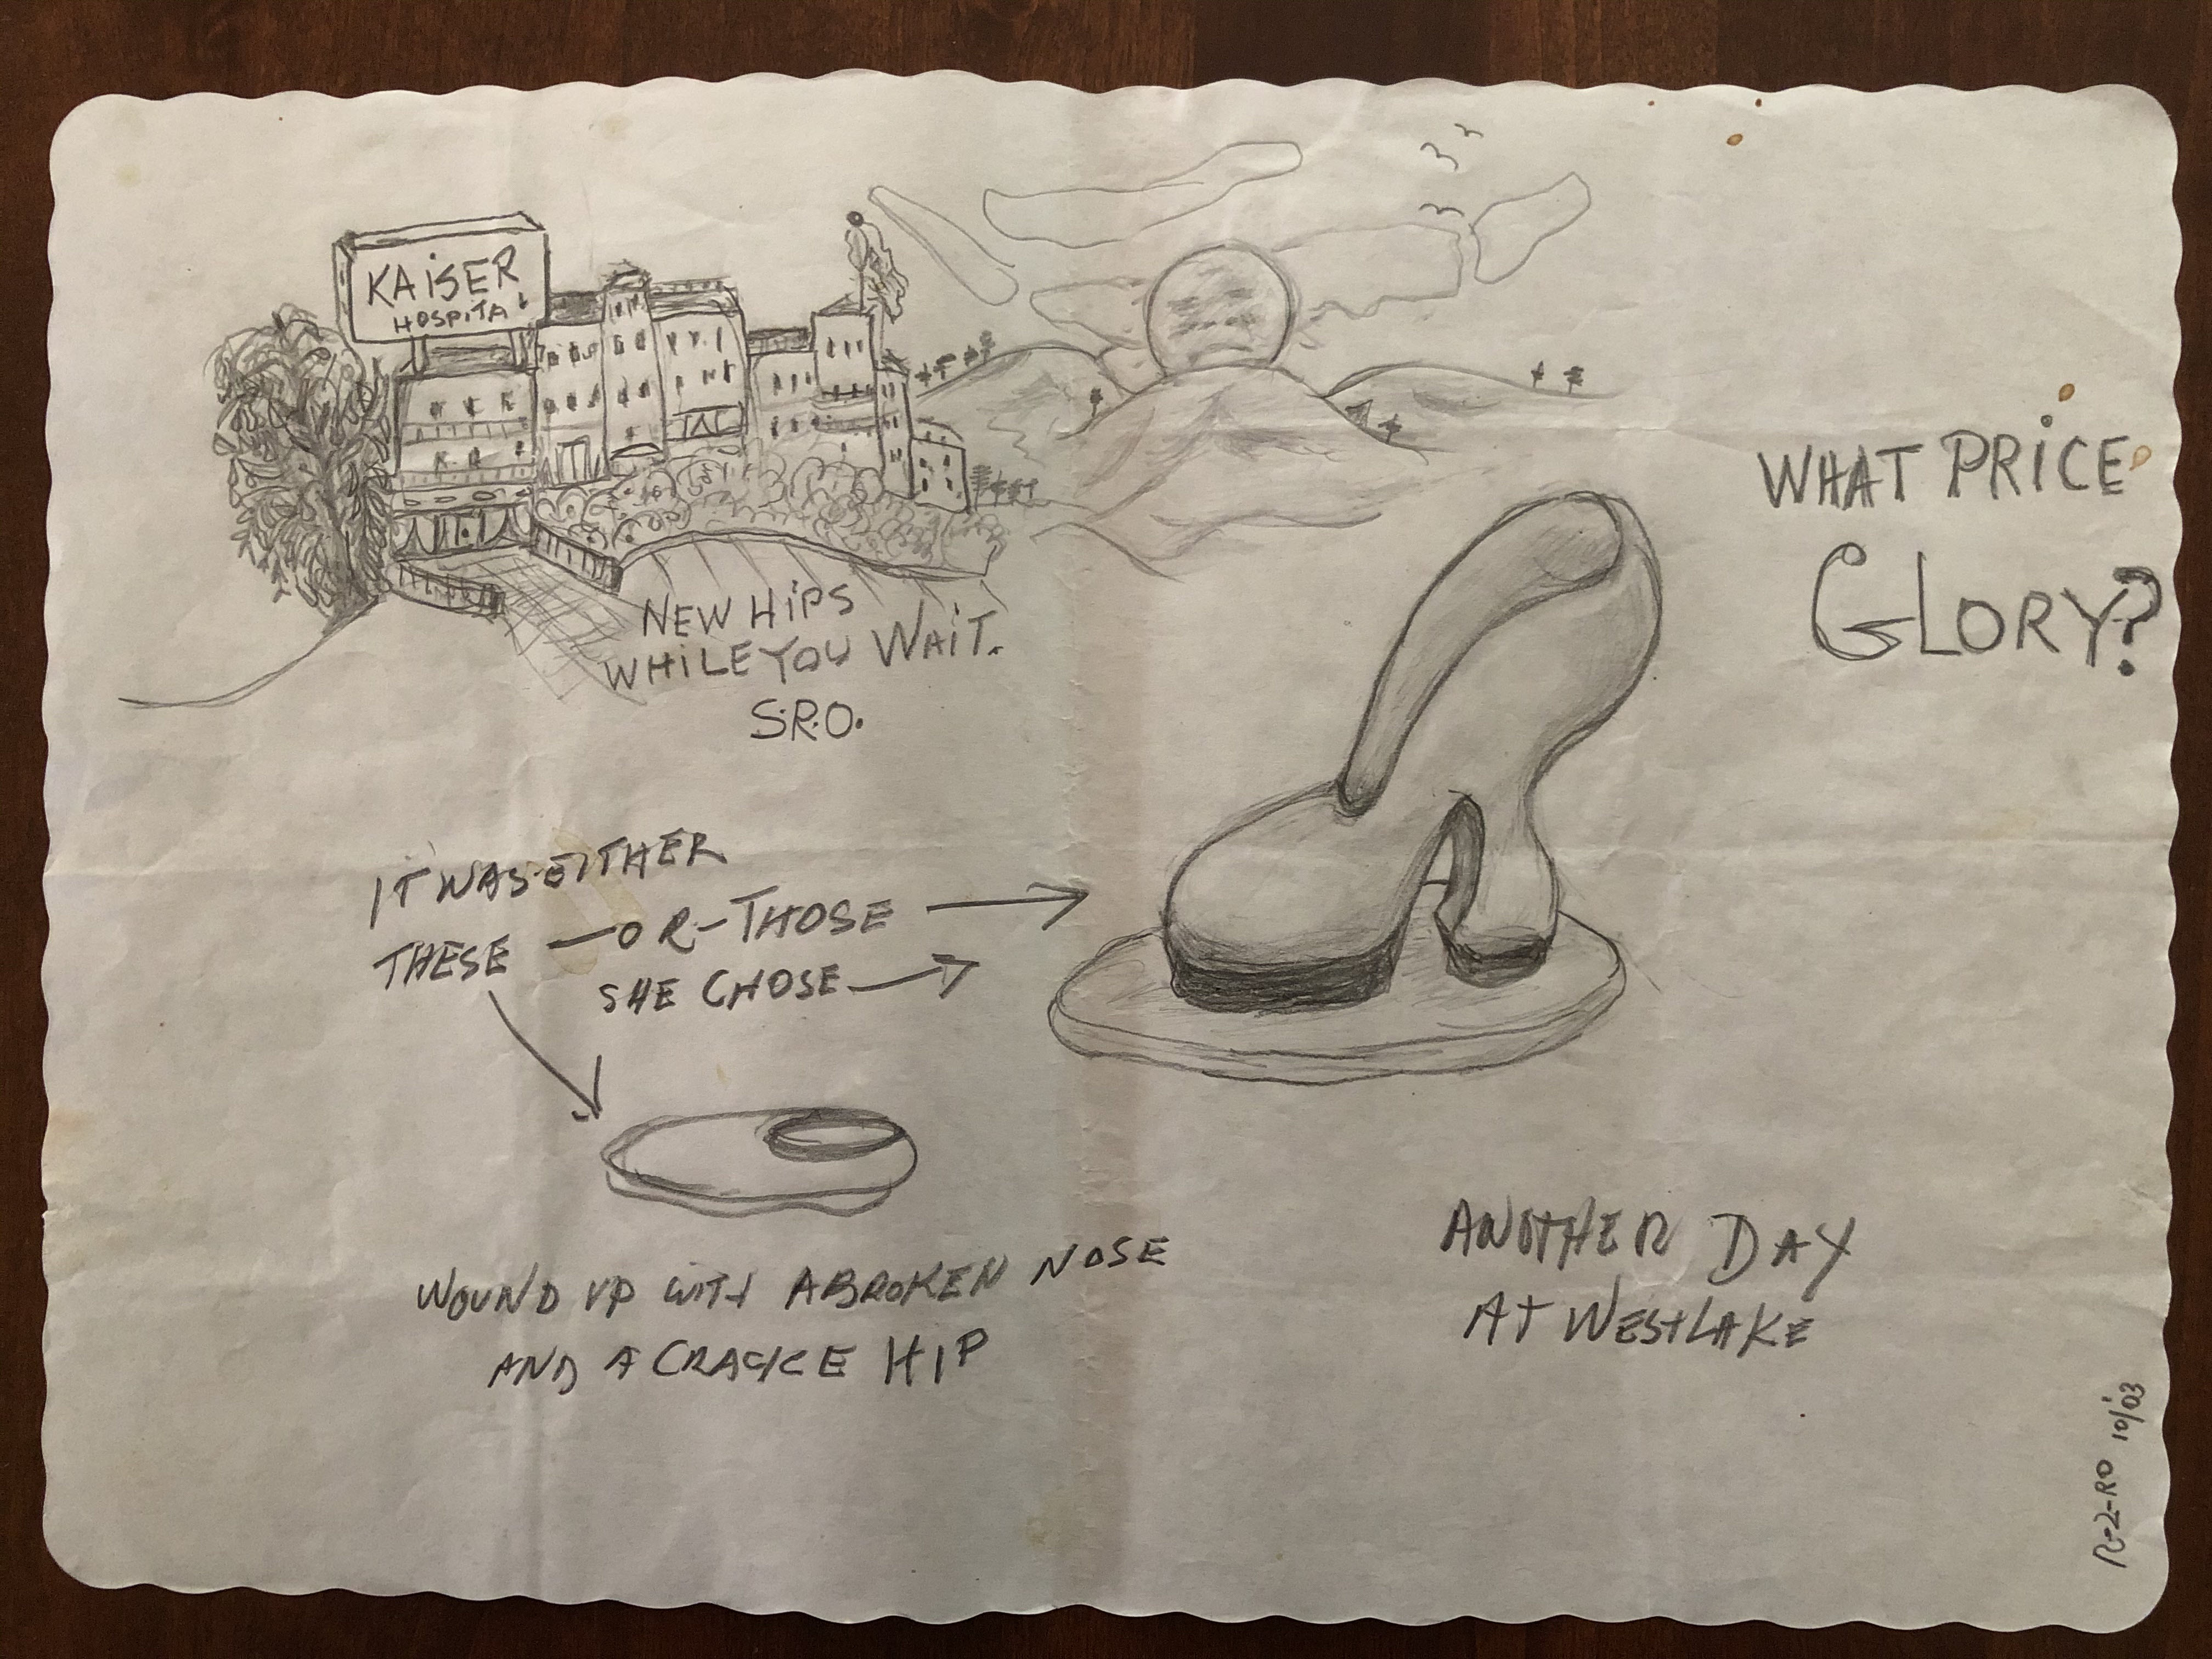 KAiSER
HOSPiTAl
NEW HiPS
WHiLE YOU WAiT.
S.R.O.
WHAT PRiCE
GLORY?
IT WAS EITHER
THESE — OR — THOSE
SHE CHOSE
WOUND UP WITH A BROKEN NOSE
AND A CRACKE HIP
ANOTHER DAY
AT WESTLAKE
R-2-RO 10/'03